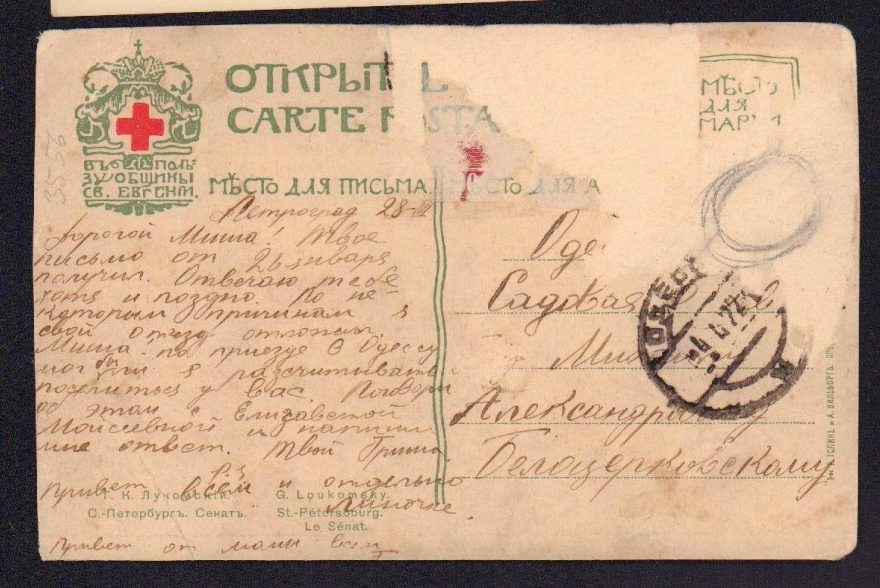 ОТКРЫТ
CARTE POSTA
МѢСТО
ДЛЯ
МАРКИ
ВЪ ПОЛЬ
ЗУ ОБЩИНЫ
СВ. ЕВГЕНІИ.
МѢСТО ДЛЯ ПИСЬМА.
МѢСТО ДЛЯ А
35-56
Петроград 28-III
Дорогой Миша! Твое
письмо от 26 января
получил. Отвечаю тебе
хотя и поздно. По не-
которым причинам я
свой отъезд отложил.
Миша по приезде в Одессу
мог бы ли я рассчитывать
поселиться у вас. Поговори
об этом с Елизаветой
Моисеевной и напиши
мне ответ. Твой Гриша.
Привет всем и отдельно
Линочке.
Привет от мамы всем
Г. К. Лукомскій.
С.-Петербургъ. Сенатъ.
G. Loukomsky.
St.-Pétersbourg.
Le Sénat.
Оде
Садовая
Михаилу
Александровичу
Белоцерковскому
ОДЕССА